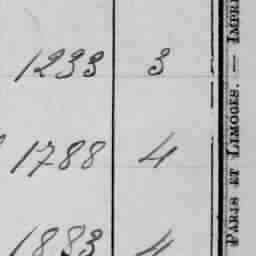 1233 3
1788 4
1883 4
PARIS ET LIMOGES. — IMPRI